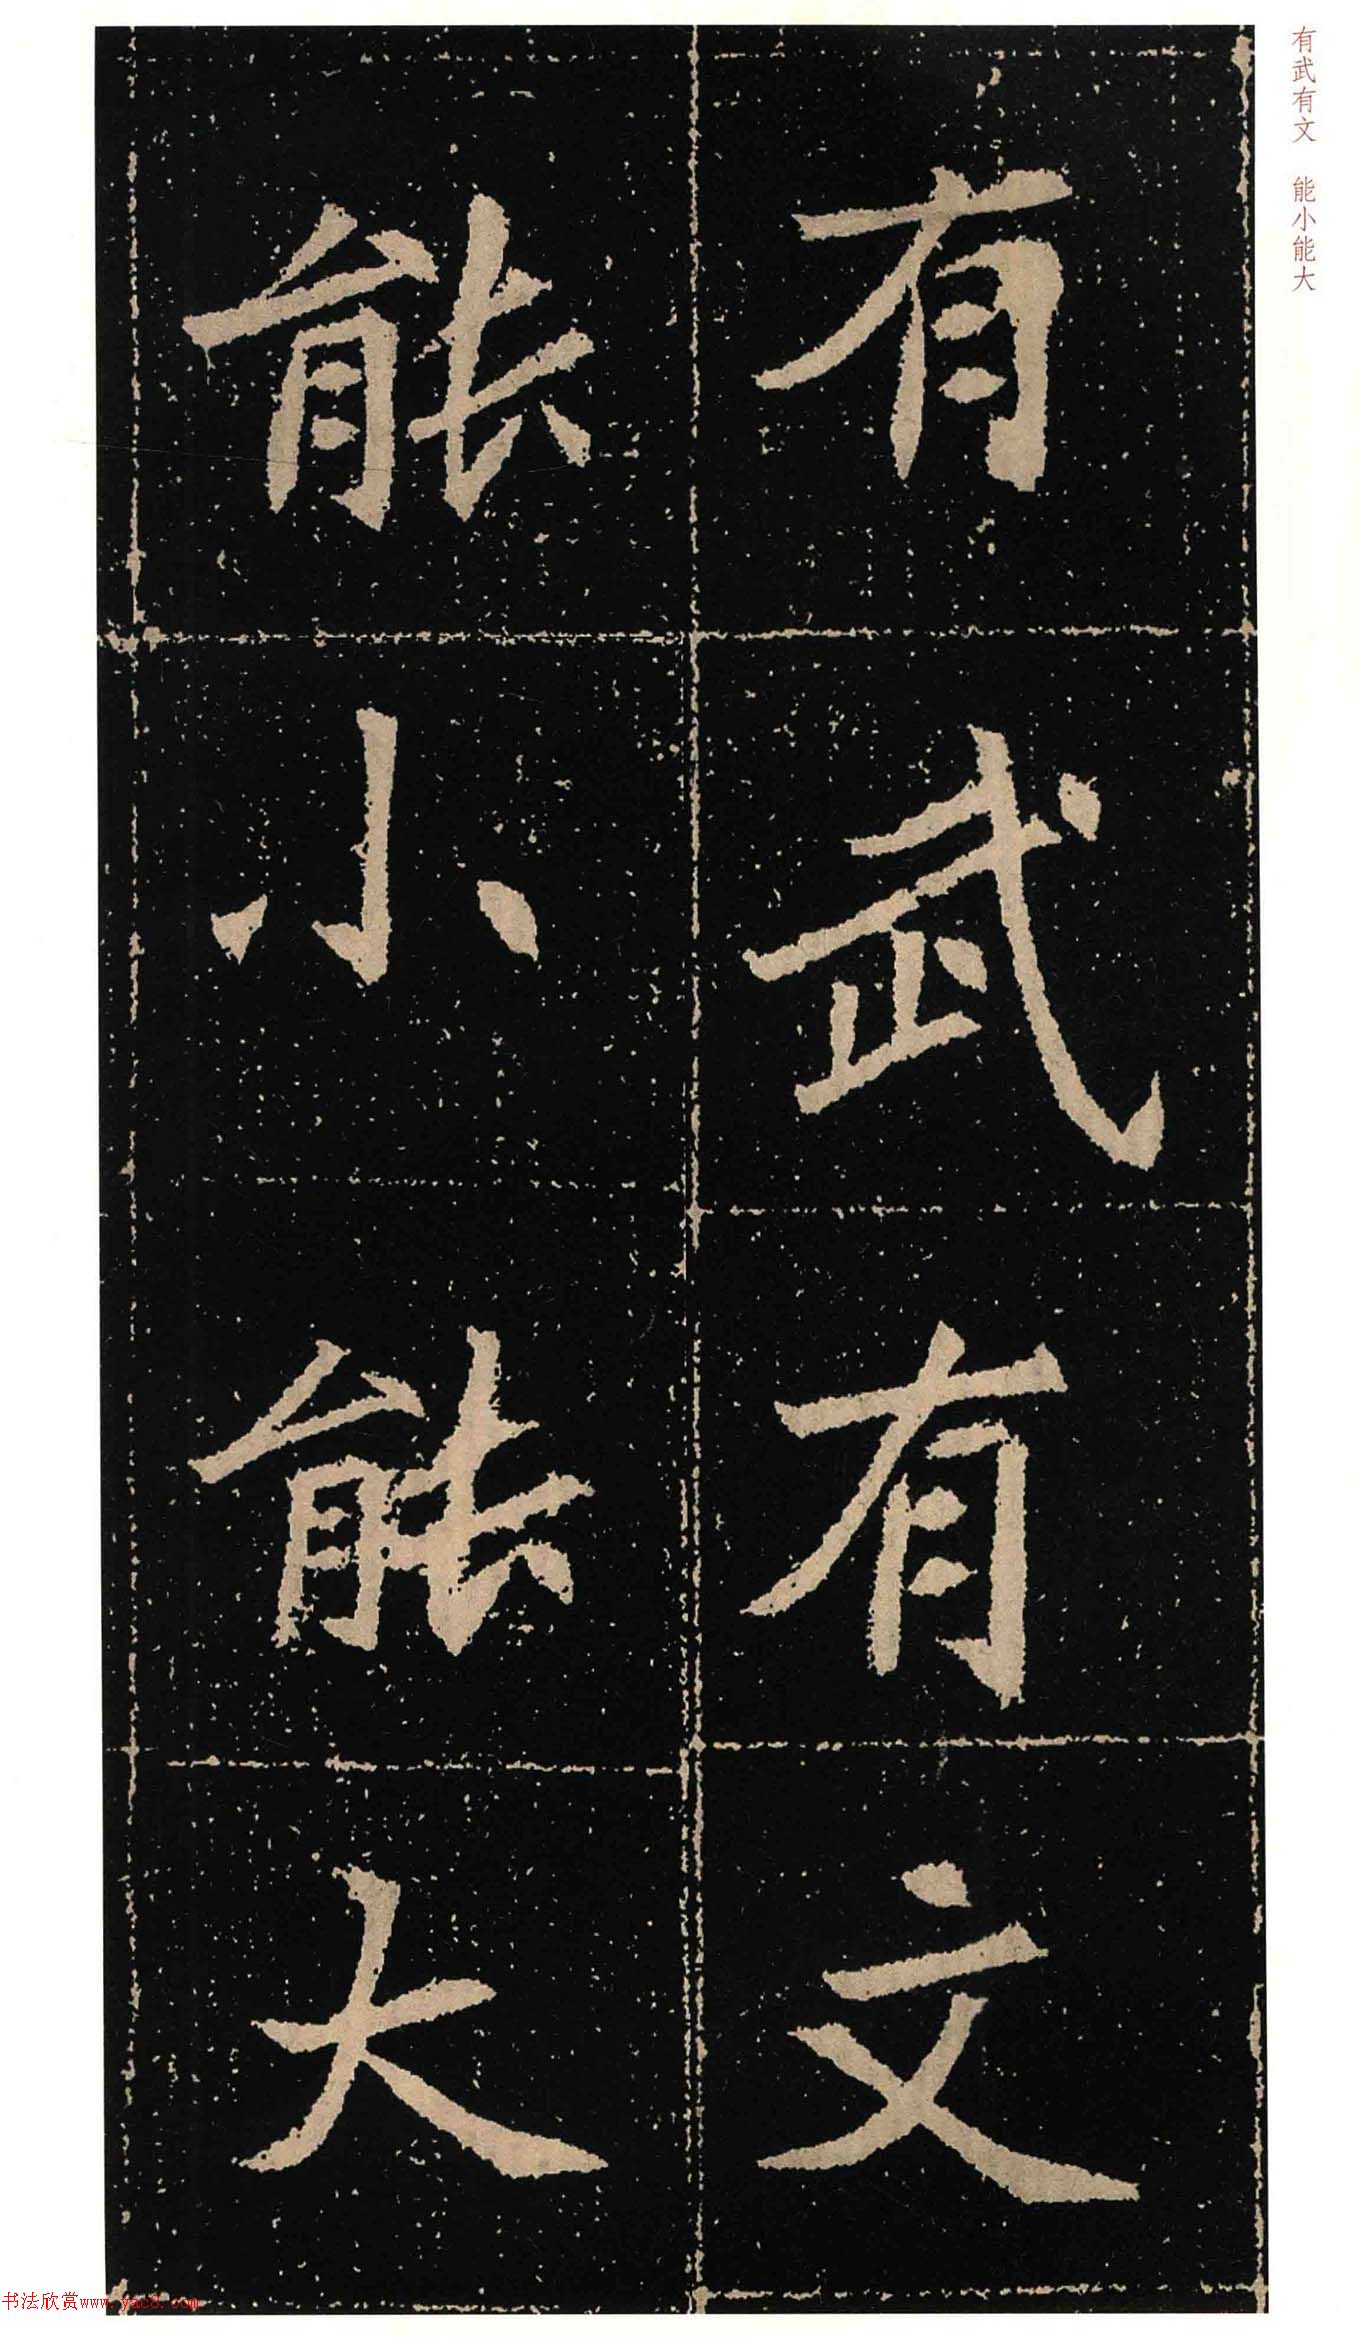 有武有文 能小能大
有武有文
能小能大
书法欣赏www.yac8.com